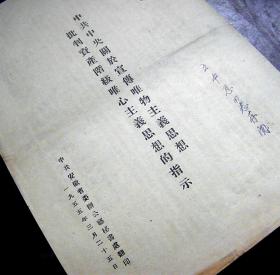 中共中央關於宣傳唯物主義思想
批判資產階級唯心主義思想的指示
中共安徽省委辦公廳秘書處翻印
一九五五年三月二十五日